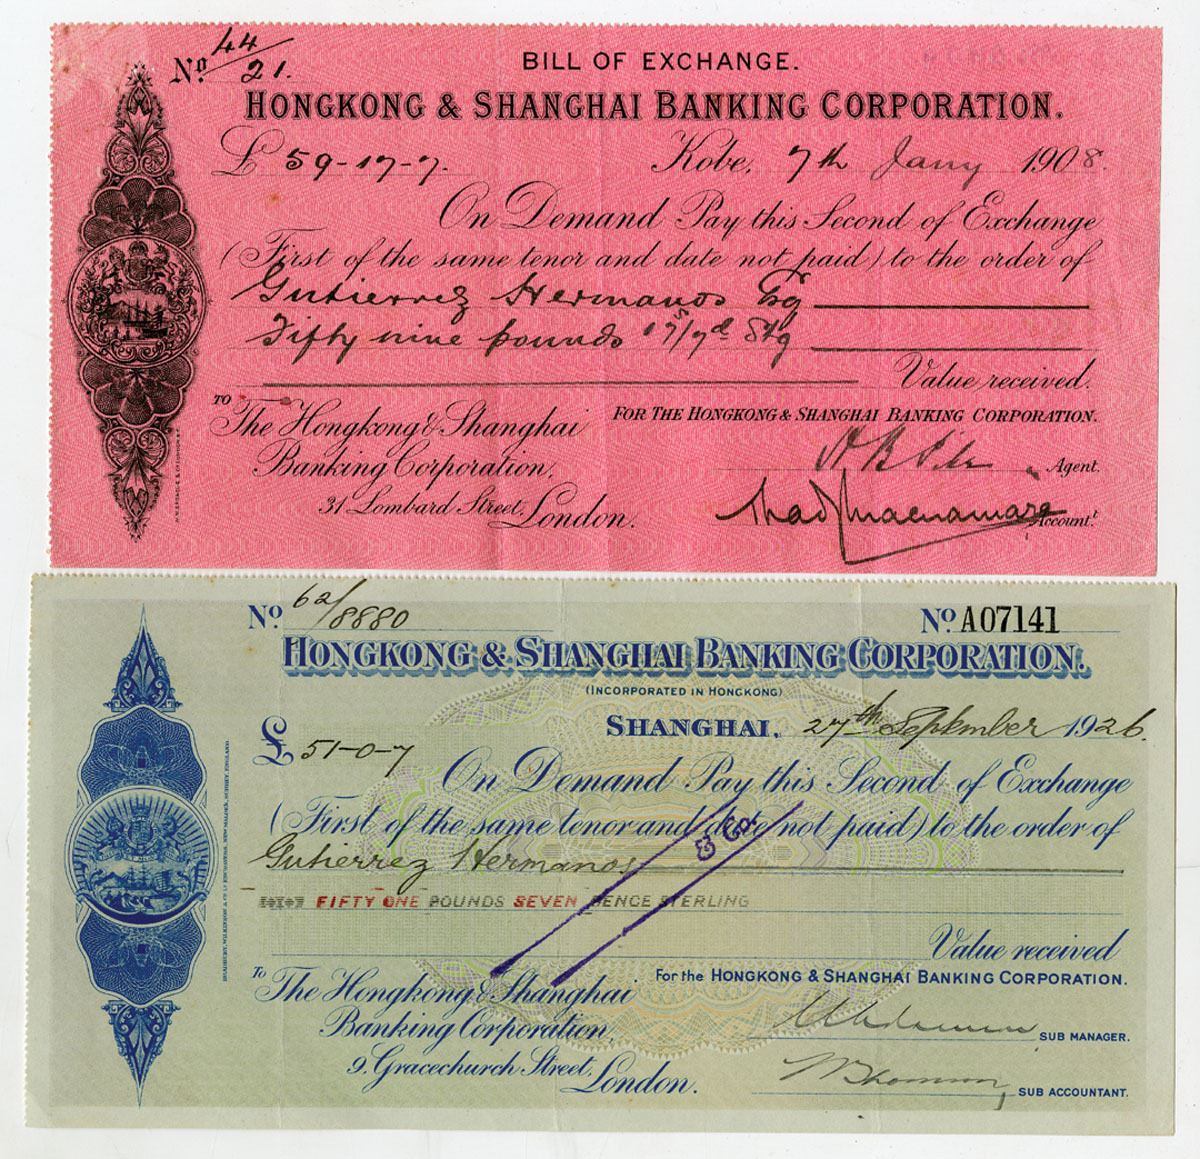 No. 44/21.
BILL OF EXCHANGE.
HONGKONG & SHANGHAI BANKING CORPORATION.
£ 59-17-7. Kobe, 7th Jany 1908.
On Demand Pay this Second of Exchange
(First of the same tenor and date not paid) to the order of
Gutierrez Hermanos Esq
Fifty nine pounds 17s/7d Stg
Value received.
TO
The Hongkong & Shanghai
Banking Corporation,
31 Lombard Street, London.
FOR THE HONGKONG & SHANGHAI BANKING CORPORATION.
Agent.
Account.t
No. 62/8880
No. A07141
HONGKONG & SHANGHAI BANKING CORPORATION.
(INCORPORATED IN HONGKONG)
SHANGHAI, 27th September 1926.
£ 51-0-7
On Demand Pay this Second of Exchange
(First of the same tenor and date not paid) to the order of
Gutierrez Hermanos
& Co.
FIFTY ONE POUNDS SEVEN PENCE STERLING
Value received
To
The Hongkong & Shanghai
Banking Corporation,
9, Gracechurch Street, London.
For the HONGKONG & SHANGHAI BANKING CORPORATION.
SUB MANAGER.
SUB ACCOUNTANT.
BRADBURY, WILKINSON & CO. LD ENGRAVERS, NEW MALDEN, SURREY, ENGLAND.